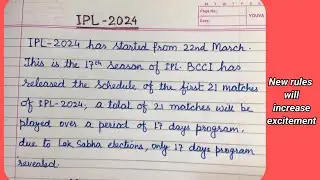 IPL-2024
IPL-2024 has started from 22nd March.
This is the 17th season of IPL. BCCI has
released the schedule of the first 21 matches
of IPL-2024, a total of 21 matches will be
played over a period of 17 days program,
due to Lok Sabha elections, only 17 days program
revealed.
New rules
will
increase
excitement
Page No.
Date
YOUVA